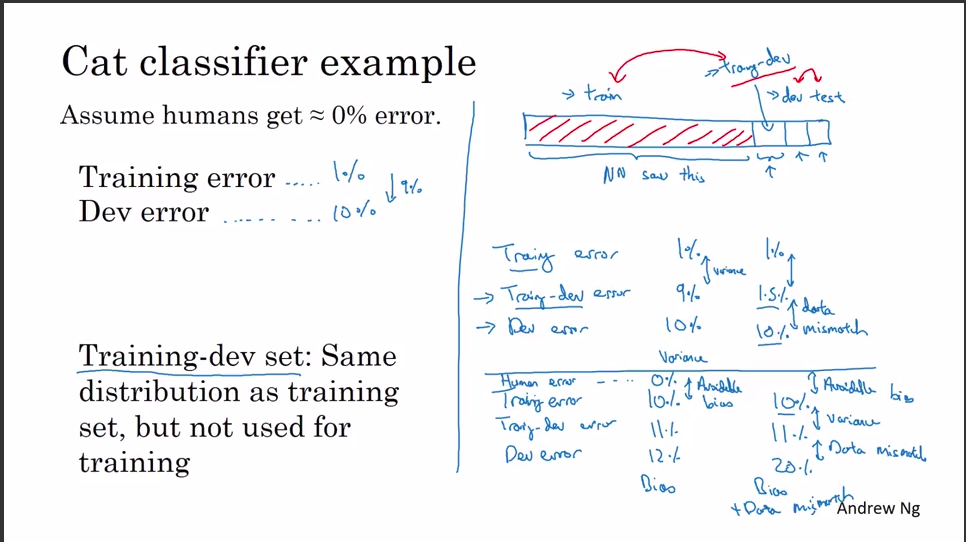 Cat classifier example
Assume humans get ≈ 0% error.
Training error ..... 1%
↓ 9%
Dev error ........ 10%
Training-dev set: Same
distribution as training
set, but not used for
training
→ train
→ traing-dev
→ dev test
NN saw this
Traing error 1% 1%
↕ variance
→ Traing-dev error 9% 1.5%
→ Dev error 10% 10%
↕ data mismatch
Variance
Human error ---- 0% ↕ Avoidable bias ↕ Avoidable bias
Traing error 10% 10%
↕ variance
Traing-dev error 11% 11%
↕ Data mismatch
Dev error 12% 20%
Bias Bias
+ Data mismatch
Andrew Ng